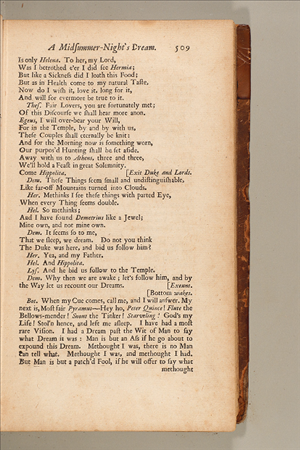 A Midsummer-Night's Dream. 509
Is only Helena. To her, my Lord,
Was I betrothed e'er I did see Hermia;
But like a Sickness did I loath this Food;
But as in Health come to my natural Taste,
Now do I wish it, love it, long for it,
And will for evermore be true to it.
Thes. Fair Lovers, you are fortunately met;
Of this Discourse we shall hear more anon.
Egeus, I will over-bear your Will,
For in the Temple, by and by with us,
These Couples shall eternally be knit:
And for the Morning now is something worn,
Our purpos'd Hunting shall be set aside.
Away with us to Athens, three and three,
We'll hold a Feast in great Solemnity.
Come Hippolita. [Exit Duke and Lords.
Dem. These Things seem small and undistinguishable,
Like far-off Mountains turned into Clouds.
Her. Methinks I see these things with parted Eye,
When every Thing seems double.
Hel. So methinks;
And I have found Demetrius like a Jewel;
Mine own, and not mine own.
Dem. It seems to me,
That we sleep, we dream. Do not you think
The Duke was here, and bid us follow him?
Her. Yea, and my Father.
Hel. And Hippolita.
Lys. And he bid us follow to the Temple.
Dem. Why then we are awake; let's follow him, and by
the Way let us recount our Dreams. [Exeunt.
[Bottom wakes.
Bot. When my Cue comes, call me, and I will answer. My
next is, Most fair Pyramus—Hey ho, Peter Quince! Flute the
Bellows-mender! Snout the Tinker! Starveling! God's my
Life! Stol'n hence, and left me asleep. I have had a most
rare Vision. I had a Dream past the Wit of Man to say
what Dream it was: Man is but an Ass if he go about to
expound this Dream. Methought I was, there is no Man
can tell what. Methought I was, and methought I had.
But Man is but a patch'd Fool, if he will offer to say what
methought